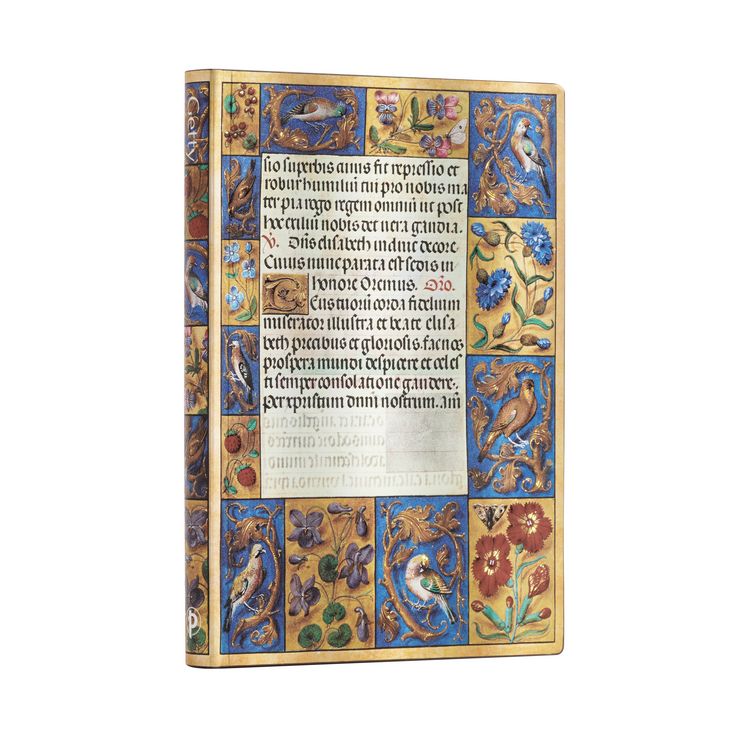 Getty
sio superbis auus fit repressio et
robur humiliū cui pro nobis ma
ter pia rogo regem omniū ut post
hoc exiliū nobis det uera gaudia.
V. Dn̄s elisabeth induit decore.
Cuius nunc parata est sedis in
honore Oremus. Oro.
Eus tuorū corda fidelium
miserator illustra et beate elisa
beth precibus et gloriosis. fac nos
prospera mundi despicere et celes
ti semper consolatione gaudere.
Per xpristum dnm̄ nostrum. am̄